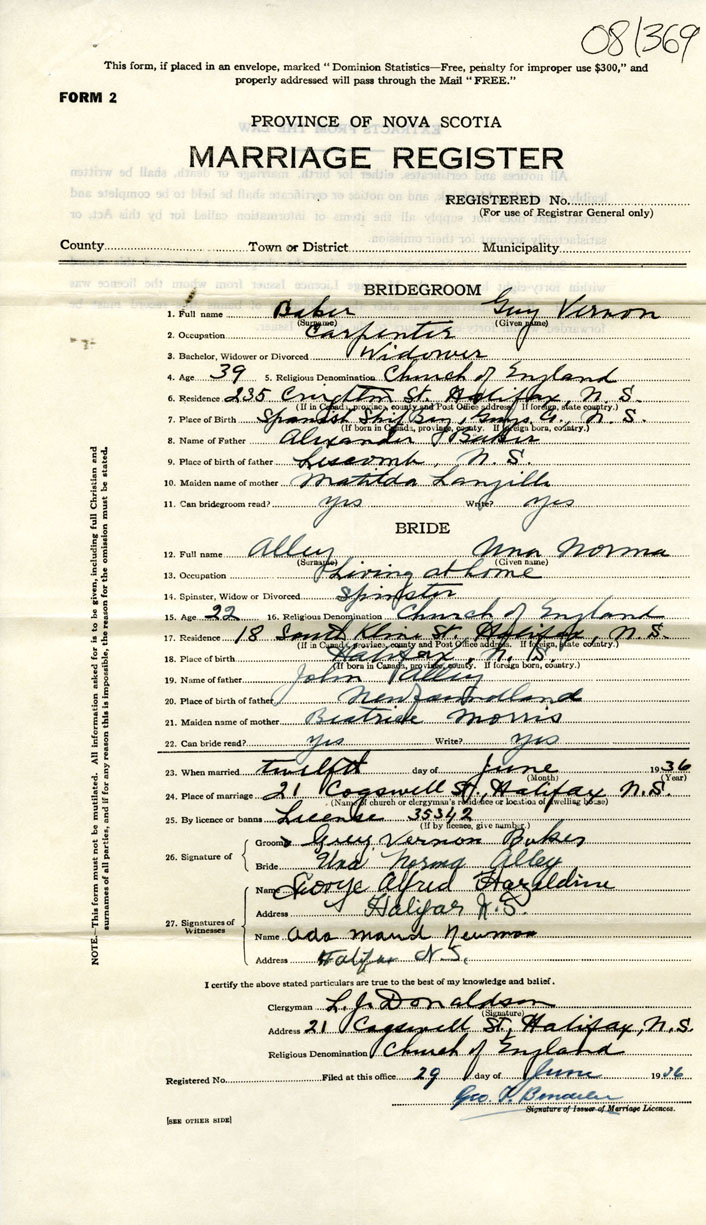 08/369
This form, if placed in an envelope, marked "Dominion Statistics—Free, penalty for improper use $300," and
properly addressed will pass through the Mail "FREE."
FORM 2
PROVINCE OF NOVA SCOTIA
MARRIAGE REGISTER
REGISTERED No.
(For use of Registrar General only)
County Town or District Municipality
BRIDEGROOM
1. Full name Baker Guy Vernon
(Surname) (Given name)
2. Occupation Carpenter
3. Bachelor, Widower or Divorced Widower
4. Age 39 5. Religious Denomination Church of England
6. Residence 235 Creighton St. Halifax, N. S.
(If in Canada, province, county and Post Office address. If foreign, state country.)
7. Place of Birth Spanish Ship Bay, Guys Co., N. S.
(If born in Canada, province, county. If foreign born, country.)
8. Name of Father Alexander Baker
9. Place of birth of father Liscomb, N. S.
10. Maiden name of mother Matilda Langille
11. Can bridegroom read? yes Write? yes
BRIDE
12. Full name Alley Una Norma
(Surname) (Given name)
13. Occupation Living at home
14. Spinster, Widow or Divorced Spinster
15. Age 22 16. Religious Denomination Church of England
17. Residence 18 South Kline St. Halifax, N. S.
(If in Canada, province, county and Post Office address. If foreign, state country.)
18. Place of birth Halifax, N. S.
(If born in Canada, province, county. If foreign born, country.)
19. Name of father John Alley
20. Place of birth of father Newfoundland
21. Maiden name of mother Beatrice Morris
22. Can bride read? yes Write? yes
23. When married twelfth day of June 1936
(Month) (Year)
24. Place of marriage 21 Cogswell St., Halifax N. S.
(Name of church or clergyman's residence or location of dwelling house)
25. By licence or banns License 35342
(If by licence, give number)
26. Signature of
Groom Guy Vernon Baker
Bride Una Norma Alley
27. Signatures of Witnesses
Name George Alfred Hazeldine
Address Halifax N. S.
Name Ada Maud Newman
Address Halifax N. S.
I certify the above stated particulars are true to the best of my knowledge and belief.
Clergyman L. J. Donaldson
(Signature)
Address 21 Cogswell St., Halifax, N. S.
Religious Denomination Church of England
Registered No. Filed at this office 29 day of June 1936
Signature of Issuer of Marriage Licences.
[SEE OTHER SIDE]
NOTE.—This form must not be mutilated. All information asked for is to be given, including full Christian and
surnames of all parties, and if for any reason this is impossible, the reason for the omission must be stated.